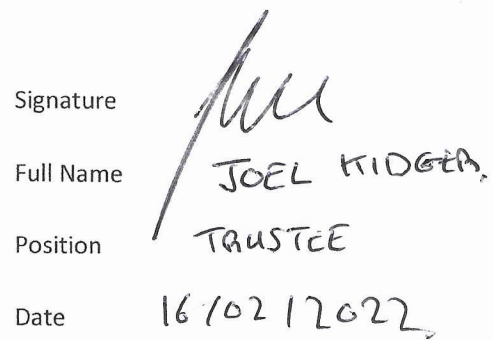 Signature
Full Name JOEL KIDGER.
Position TRUSTEE
Date 16/02/2022